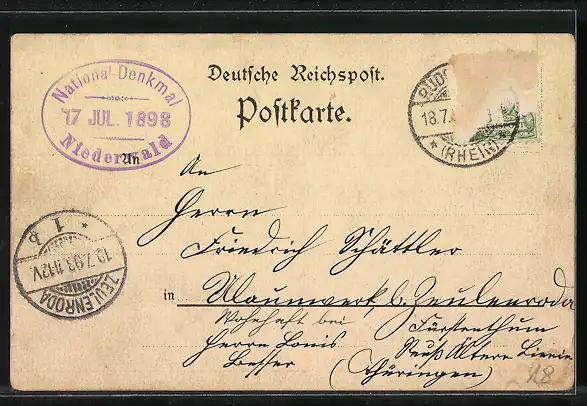 National-Denkmal
17 JUL. 1898
Niederwald
Deutsche Reichspost.
Postkarte.
RÜD
18.7.
* (RHEIN) *
An
An
Herrn
Friedrich Schättler
in Alaunwerk, b. Zeulenroda
Wohnhaft bei Fürstenthum
Herrn Louis Reuß Ältere Linie
Besser (Thüringen)
* 1 b
19.7.98. 11-12V.
ZEULENRODA
18